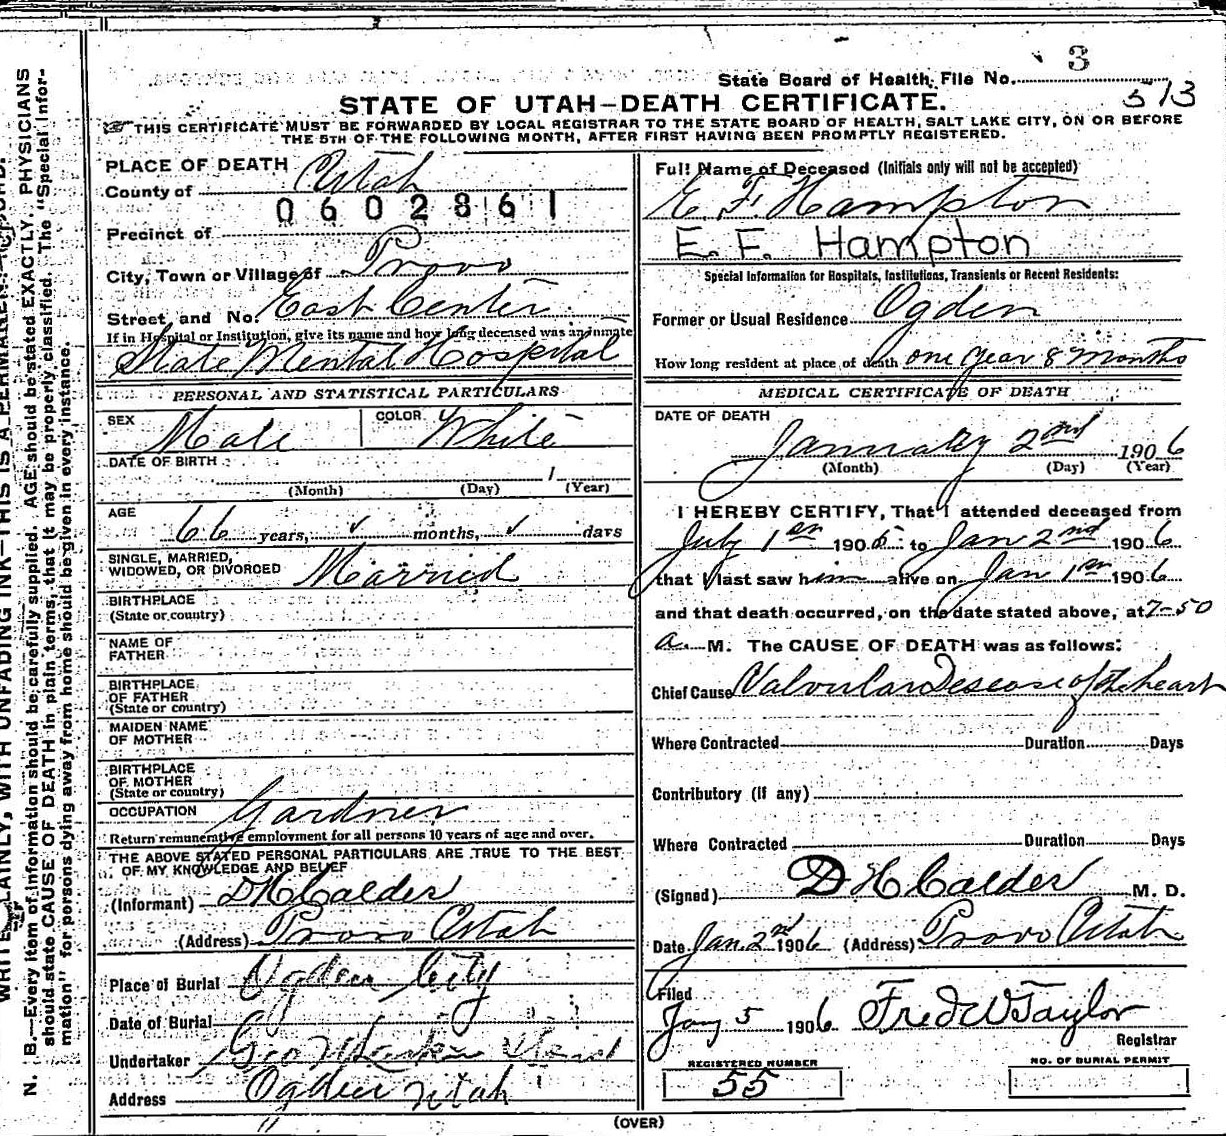 3
State Board of Health, File No.
513
STATE OF UTAH—DEATH CERTIFICATE.
THIS CERTIFICATE MUST BE FORWARDED BY LOCAL REGISTRAR TO THE STATE BOARD OF HEALTH, SALT LAKE CITY, ON OR BEFORE
THE 5TH OF THE FOLLOWING MONTH, AFTER FIRST HAVING BEEN PROMPTLY REGISTERED.
PLACE OF DEATH
County of Utah
0602861
Precinct of
City, Town or Village of Provo
Street and No. East Center
If in Hospital or Institution, give its name and how long deceased was an inmate
State Mental Hospital
PERSONAL AND STATISTICAL PARTICULARS
SEX Male COLOR White
DATE OF BIRTH 1
(Month) (Day) (Year)
AGE
66 years, ✓ months, ✓ days
SINGLE, MARRIED,
WIDOWED, OR DIVORCED Married
BIRTHPLACE
(State or country)
NAME OF
FATHER
BIRTHPLACE
OF FATHER
(State or country)
MAIDEN NAME
OF MOTHER
BIRTHPLACE
OF MOTHER
(State or country)
OCCUPATION Gardner
Return remunerative employment for all persons 10 years of age and over.
THE ABOVE STATED PERSONAL PARTICULARS ARE TRUE TO THE BEST
OF MY KNOWLEDGE AND BELIEF
(Informant) D H Calder
(Address) Provo Utah
Place of Burial Ogden City
Date of Burial
Undertaker Geo
Address Ogden Utah
Full Name of Deceased (Initials only will not be accepted)
E. F. Hampton
E. F. Hampton
Special Information for Hospitals, Institutions, Transients or Recent Residents:
Former or Usual Residence Ogden
How long resident at place of death one year 8 months
MEDICAL CERTIFICATE OF DEATH
DATE OF DEATH
January 2nd 1906
(Month) (Day) (Year)
I HEREBY CERTIFY, That I attended deceased from
July 1 1905 to Jan 2nd 1906
that I last saw him alive on Jan 1 1906
and that death occurred, on the date stated above, at 7-50
a. M. The CAUSE OF DEATH was as follows:
Chief Cause Valvular Desease of the heart
Where Contracted Duration Days
Contributory (if any)
Where Contracted Duration Days
(Signed) D H Calder M. D.
Date Jan. 2nd 1906 (Address) Provo Utah
Filed
Jany 5 1906 Fred W Taylor
Registrar
REGISTERED NUMBER
55
NO. OF BURIAL PERMIT
(OVER)
WRITE PLAINLY, WITH UNFADING INK—THIS IS A PERMANENT
N. B.—Every item of information should be carefully supplied. AGE should be stated EXACTLY. PHYSICIANS
should state CAUSE OF DEATH in plain terms, that it may be properly classified. The "Special Infor-
mation" for persons dying away from home should be given in every instance.